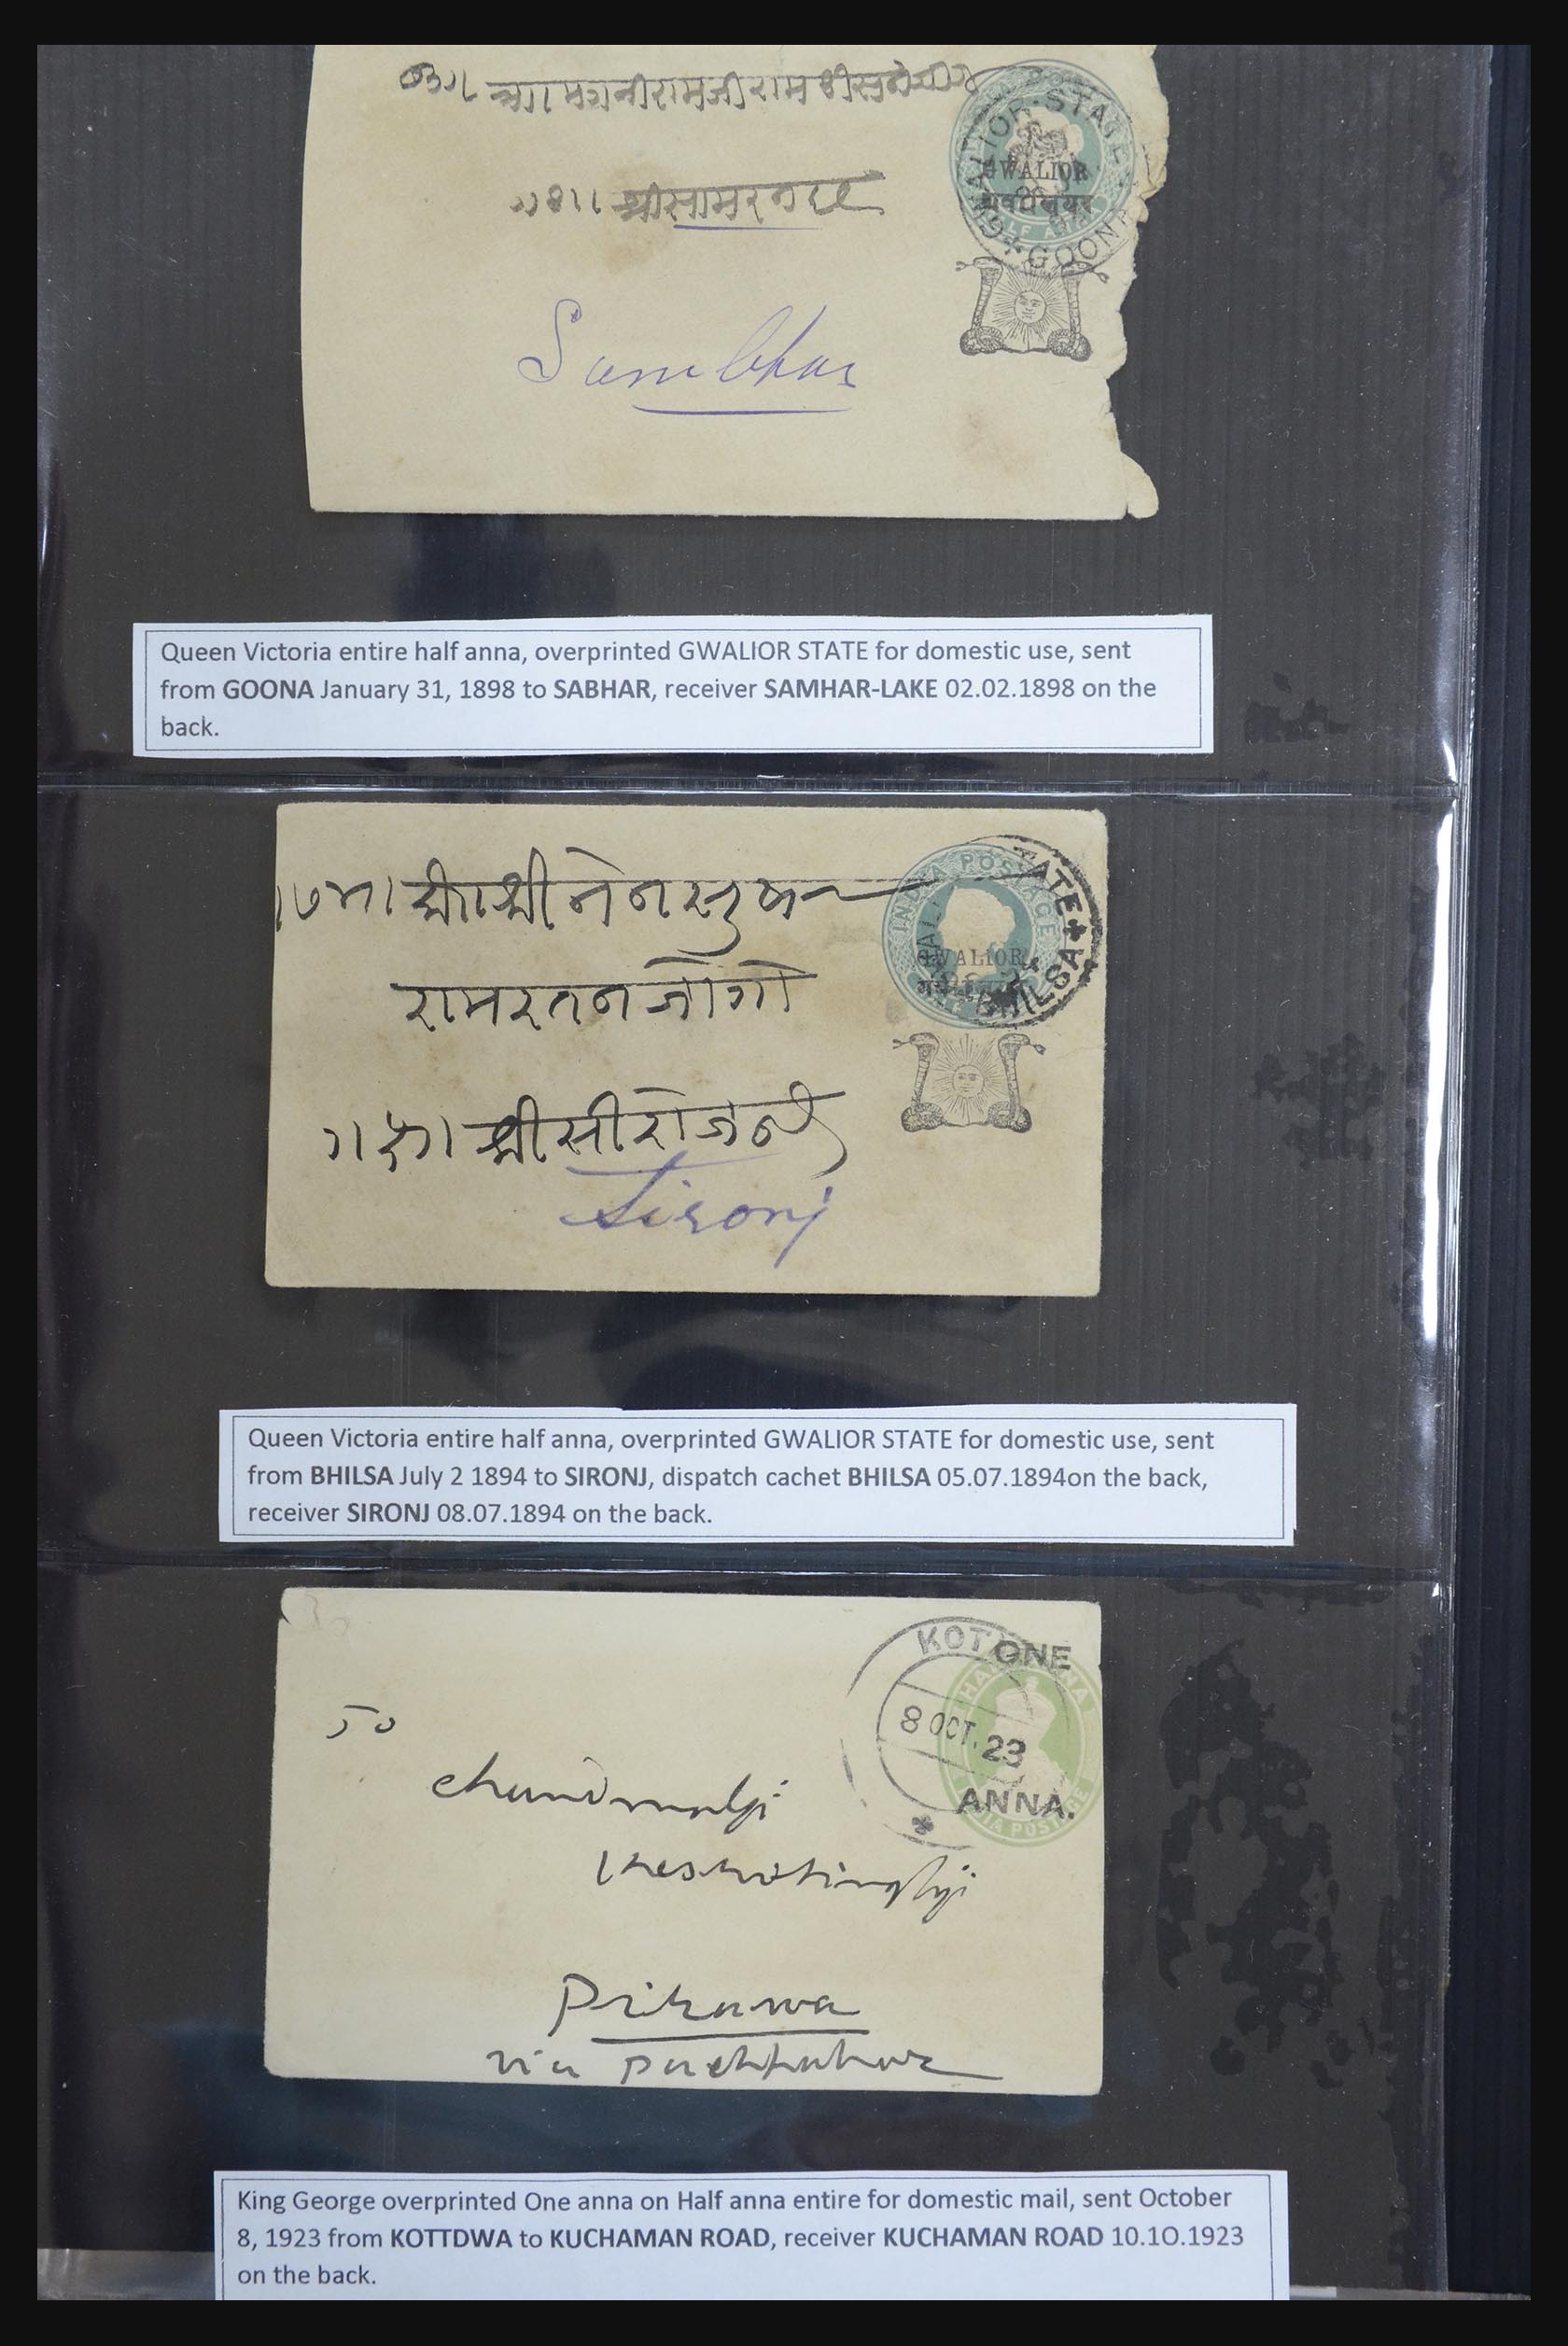 श्रीसामरनदा
GWALIOR STATE
GWALIOR
HALF ANNA
GOONA
Sambhar
Queen Victoria entire half anna, overprinted GWALIOR STATE for domestic use, sent
from GOONA January 31, 1898 to SABHAR, receiver SAMHAR-LAKE 02.02.1898 on the
back.
INDIA POSTAGE
STATE
GWALIOR
BHILSA
रामरतनजोगो
Sironj
Queen Victoria entire half anna, overprinted GWALIOR STATE for domestic use, sent
from BHILSA July 2 1894 to SIRONJ, dispatch cachet BHILSA 05.07.1894on the back,
receiver SIRONJ 08.07.1894 on the back.
KOT
ONE
8 OCT. 23
ANNA.
INDIA POSTAGE
To
Pirawa
via Pachpahar
King George overprinted One anna on Half anna entire for domestic mail, sent October
8, 1923 from KOTTDWA to KUCHAMAN ROAD, receiver KUCHAMAN ROAD 10.1O.1923
on the back.